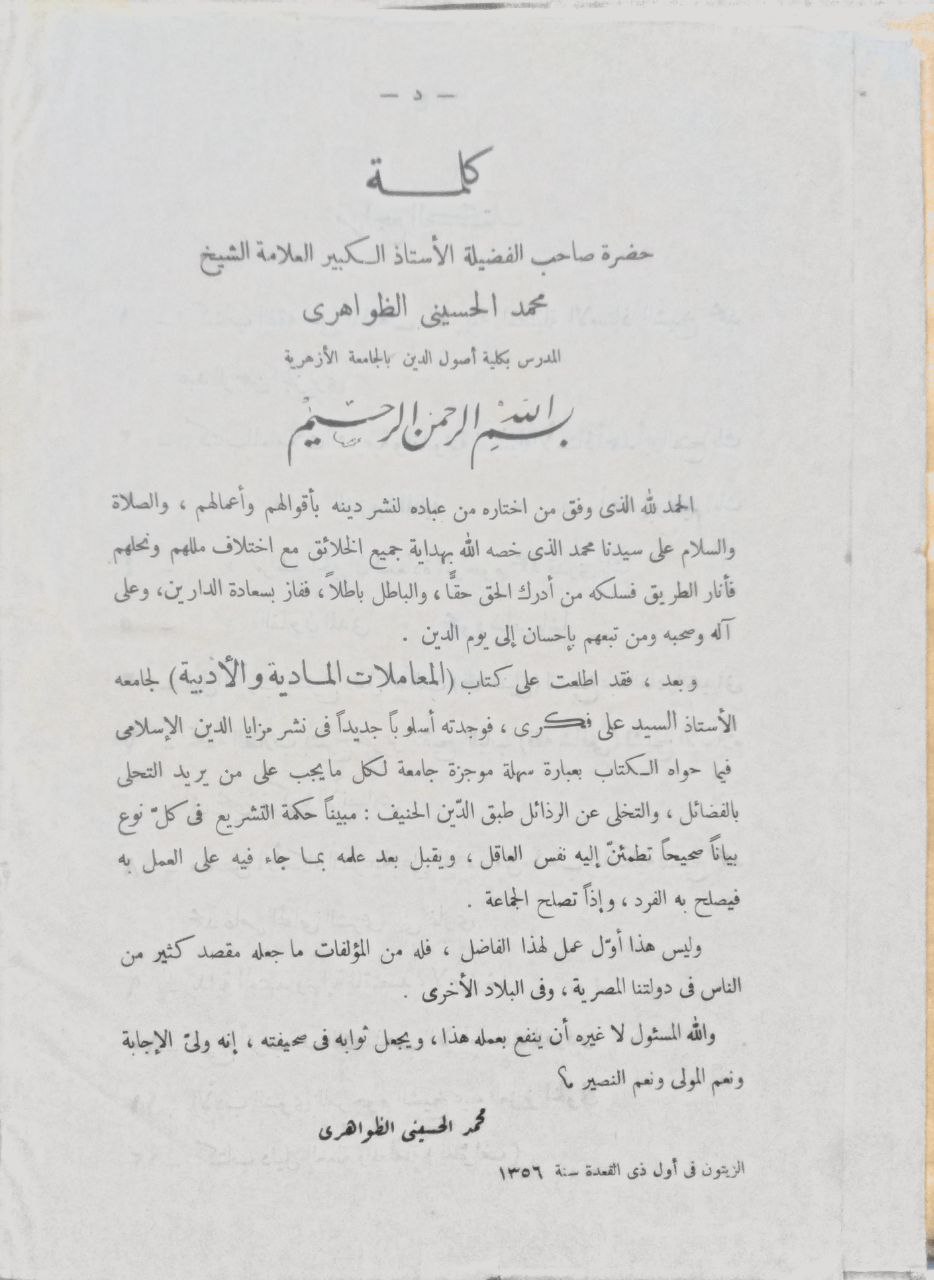 — د —
كلمة
حضرة صاحب الفضيلة الأستاذ الكبير العلامة الشيخ
محمد الحسينى الظواهرى
المدرس بكلية أصول الدين بالجامعة الأزهرية
بسم الله الرحمن الرحيم
الحمد لله الذى وفق من اختاره من عباده لنشر دينه بأقوالهم وأعمالهم ، والصلاة
والسلام على سيدنا محمد الذى خصه الله بهداية جميع الخلائق مع اختلاف مللهم ونحلهم
فأنار الطريق فسلكه من أدرك الحق حقًّا ، والباطل باطلاً ، ففاز بسعادة الدارين ، وعلى
آله وصحبه ومن تبعهم بإحسان إلى يوم الدين .
وبعد ، فقد اطلعت على كتاب (المعاملات المادية والأدبية) لجامعه
الأستاذ السيد على فكرى ، فوجدته أسلوباً جديداً فى نشر مزايا الدين الإسلامى
فيما حواه الكتاب بعبارة سهلة موجزة جامعة لكل ما يجب على من يريد التحلى
بالفضائل ، والتخلى عن الرذائل طبق الدّين الحنيف : مبيناً حكمة التشريع فى كلّ نوع
بياناً صحيحاً تطمئنّ إليه نفس العاقل ، ويقبل بعد علمه بما جاء فيه على العمل به
فيصلح به الفرد ، وإذاً تصلح الجماعة .
وليس هذا أوّل عمل لهذا الفاضل ، فله من المؤلفات ما جعله مقصد كثير من
الناس فى دولتنا المصرية ، وفى البلاد الأخرى .
والله المسئول لا غيره أن ينفع بعمله هذا ، ويجعل ثوابه فى صحيفته ، إنه ولىّ الإجابة
ونعم المولى ونعم النصير ؟
محمد الحسينى الظواهرى
الزيتون فى أول ذى القعدة سنة ١٣٥٦